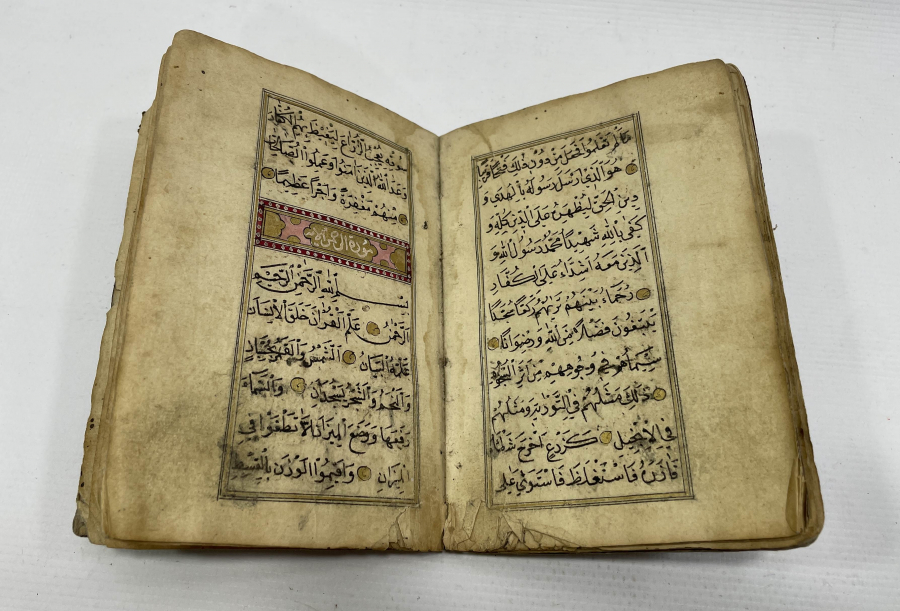 مَالَمْ تَعْلَمُوا فَجَعَلَ مِنْ دُونِ ذٰلِكَ فَتْحًا قَرِيبًا
هُوَ الَّذِي اَرْسَلَ رَسُولَهُ بِالْهُدٰى وَ
دِينِ الْحَقِّ لِيُظْهِرَهُ عَلَى الدِّينِ كُلِّهِ وَ
كَفٰى بِاللّٰهِ شَهِيدًا مُحَمَّدٌ رَسُولُ اللّٰهِ وَ
الَّذِينَ مَعَهُ اَشِدَّاءُ عَلَى الْكُفَّارِ
رُحَمَاءُ بَيْنَهُمْ تَرٰيهُمْ رُكَّعًا سُجَّدًا
يَبْتَغُونَ فَضْلًا مِنَ اللّٰهِ وَرِضْوَانًا
سِيمَاهُمْ فِي وُجُوهِهِمْ مِنْ اَثَرِ السُّجُودِ
ذٰلِكَ مَثَلُهُمْ فِي التَّوْرٰيةِ وَمَثَلُهُمْ
فِي الْاِنْجِيلِ كَزَرْعٍ اَخْرَجَ شَطْأَهُ
فَاٰزَرَهُ فَاسْتَغْلَظَ فَاسْتَوٰى عَلٰى
سُوقِهِ يُعْجِبُ الزُّرَّاعَ لِيَغِيظَ بِهِمُ الْكُفَّارَ
وَعَدَ اللّٰهُ الَّذِينَ اٰمَنُوا وَعَمِلُوا الصَّالِحَاتِ
مِنْهُمْ مَغْفِرَةً وَاَجْرًا عَظِيمًا
سورة الرحمن
بِسْمِ اللّٰهِ الرَّحْمٰنِ الرَّحِيمِ
الرَّحْمٰنُ عَلَّمَ الْقُرْاٰنَ خَلَقَ الْاِنْسَانَ
عَلَّمَهُ الْبَيَانَ اَلشَّمْسُ وَالْقَمَرُ بِحُسْبَانٍ
وَالنَّجْمُ وَالشَّجَرُ يَسْجُدَانِ وَالسَّمَاءَ
رَفَعَهَا وَوَضَعَ الْمِيزَانَ اَلَّا تَطْغَوْا فِي
الْمِيزَانِ وَاَقِيمُوا الْوَزْنَ بِالْقِسْطِ